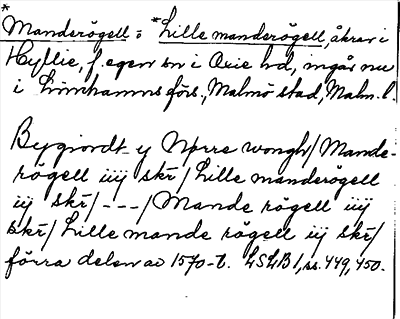 *Manderögell = *Lille manderögell, åkrar i
Hyllie, f. egen sn i Oxie hd, ingår nu
i Limhamns förs., Malmö stad, Malm. l.
Bygiordt y Nørre wongh/Mande-
rögell iiij skr/Lille manderögell
iij skr/---/Mande rögell iiij
skr/Lille mande rögell iij skr/
förra delen av 1570-t. LSLB 1, ss. 449, 450.